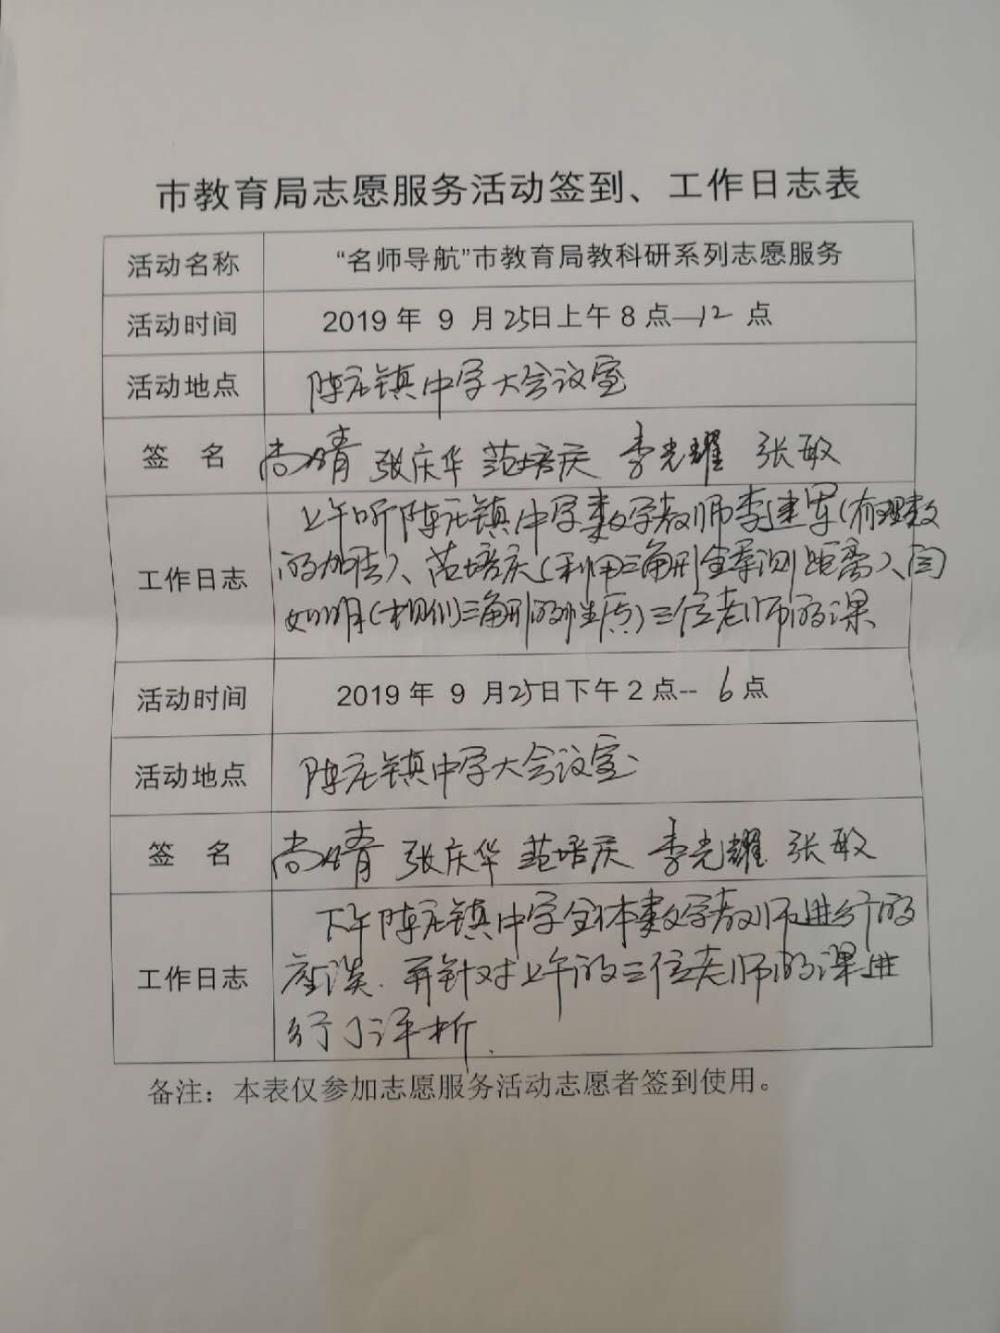 市教育局志愿服务活动签到、工作日志表
活动名称 “名师导航”市教育局教科研系列志愿服务
活动时间 2019 年 9 月25日上午 8 点—12 点
活动地点 陈庄镇中学大会议室
签 名 尚 张庆华 范培庆 李光耀 张敏
工作日志 上午听陈庄镇中学数学教师李建军(有理数
的加法)、范培庆(利用三角形全等测距离)、闫
如月(相似三角形的性质)三位老师的课
活动时间 2019 年 9 月25日下午 2 点-- 6 点
活动地点 陈庄镇中学大会议室
签 名 尚 张庆华 范培庆 李光耀 张敏
工作日志 下午陈庄镇中学全体数学教师进行的
座谈.并针对上午的三位老师的课进
行了评析.
备注：本表仅参加志愿服务活动志愿者签到使用。